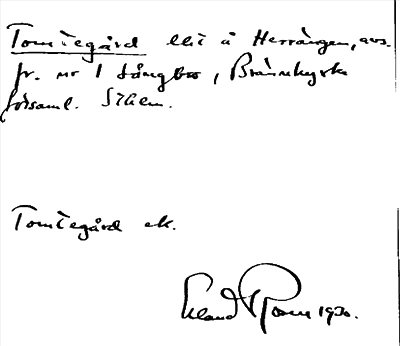 Tomtegård litt å Herrängen, avs.
fr. nr 1 Långbro, Brännkyrka
församl. Sthlm.
Tomtegård ek.
Erland Rosen 1930.